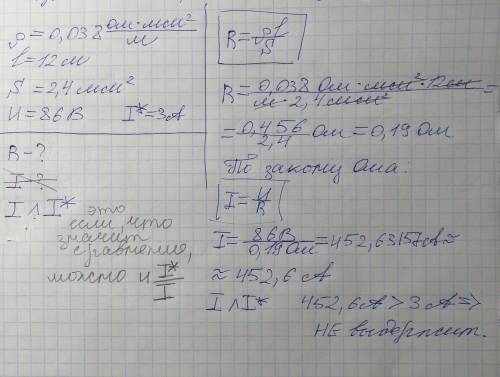 ρ = 0,038 Ом·мм²/м
l = 12 м
S = 2,4 мм²
U = 86 В   I* = 3 А
R - ?
I - ?
I ∧ I* это
если, что
значит
сравнения,
можно и I*/I
R = ρl/S
R = 0,038 Ом·мм²·12м / м·2,4мм² =
= 0,456/2,4 Ом = 0,19 Ом
По закону Ома:
I = U/R
I = 86В/0,19 Ом = 452,63157А ≈
≈ 452,6 А
I ∧ I*   452,6А > 3А =>
НЕ выдержит.